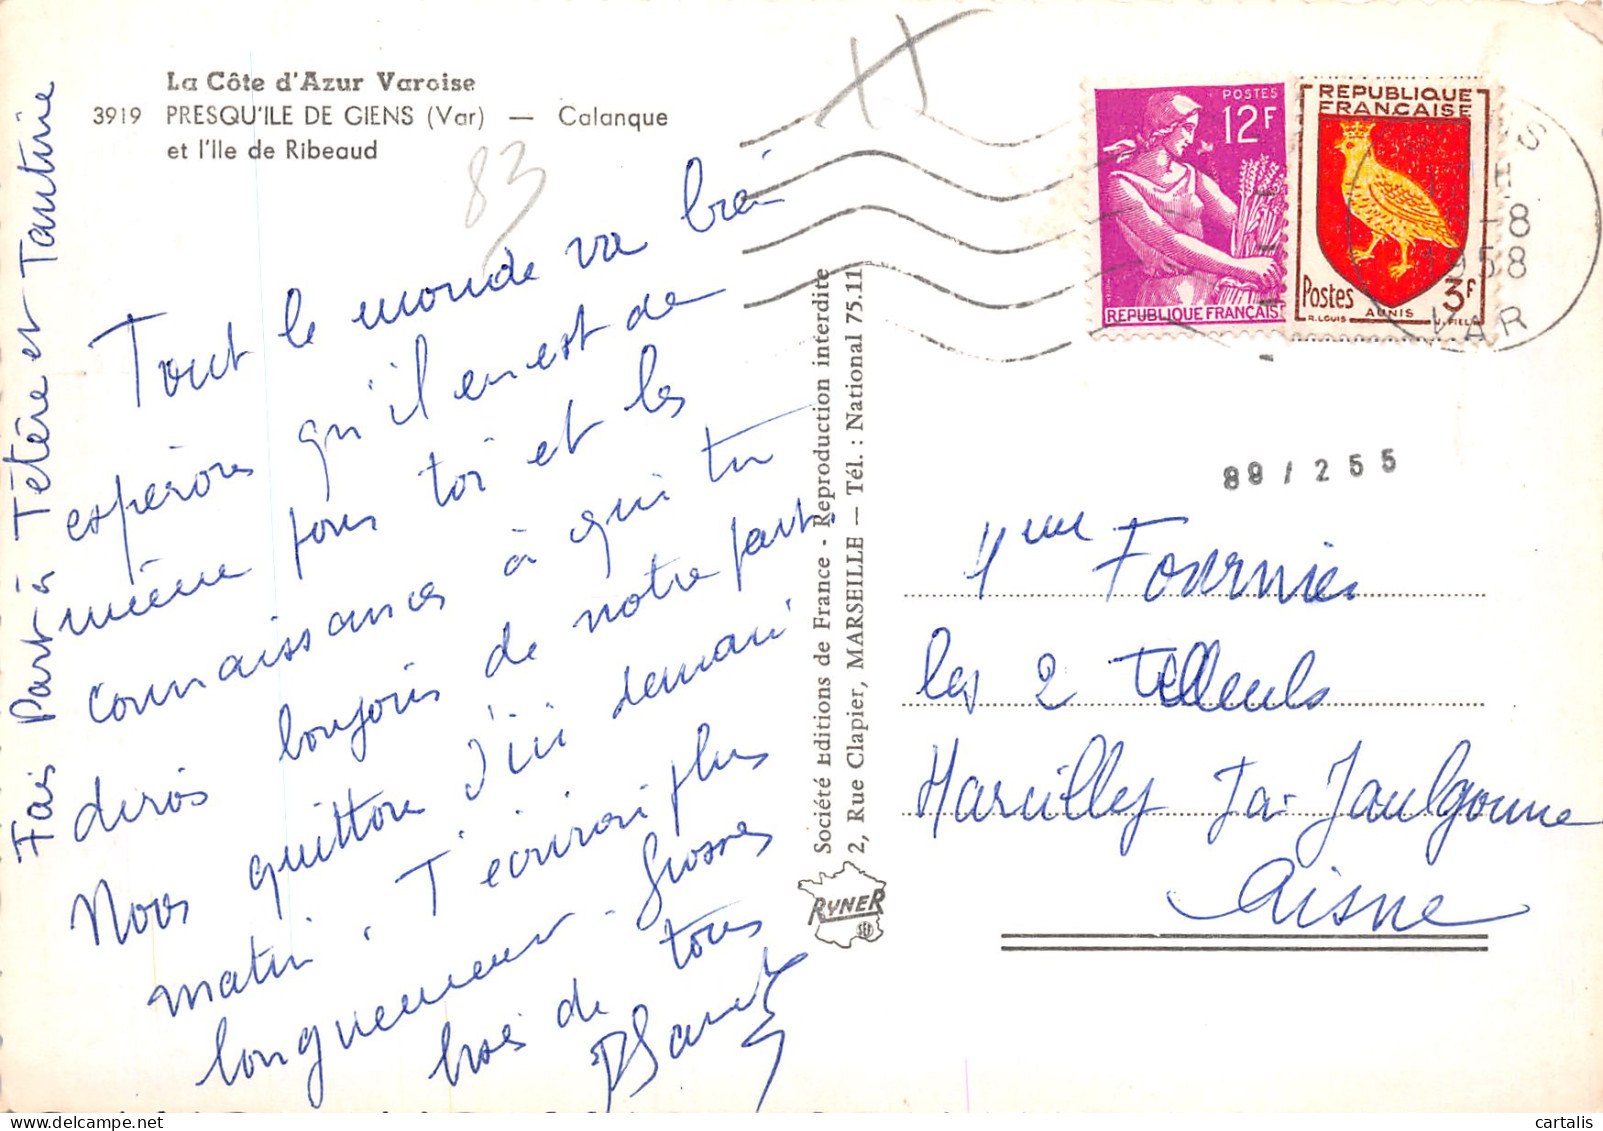 La Côte d'Azur Varoise
3919 PRESQU'ILE DE GIENS (Var) — Calanque
et l'Ile de Ribeaud
83
Tout le monde va bien
espérons qu'il en est de
même pour toi et les
connaissances à qui tu
diras bonjour de notre part.
Nous quittons d'ici demain
matin. T'écrirai plus
longuement. Grosses
bises de tous
Fais Part à Tétére et Tantine
Société Editions de France - Reproduction interdite
2, Rue Clapier, MARSEILLE — Tél. : National 75.11
RYNER
SEF
POSTES
12F
REPUBLIQUE FRANÇAISE
REPUBLIQUE
FRANÇAISE
Postes 3F
R.LOUIS AUNIS J.PIEL
H
-8
1958
VAR
88/255
Mme Fournier
les 2 Tilleuls
Marcilly par Jaulgonne
Aisne
cartalis
delcampe.net